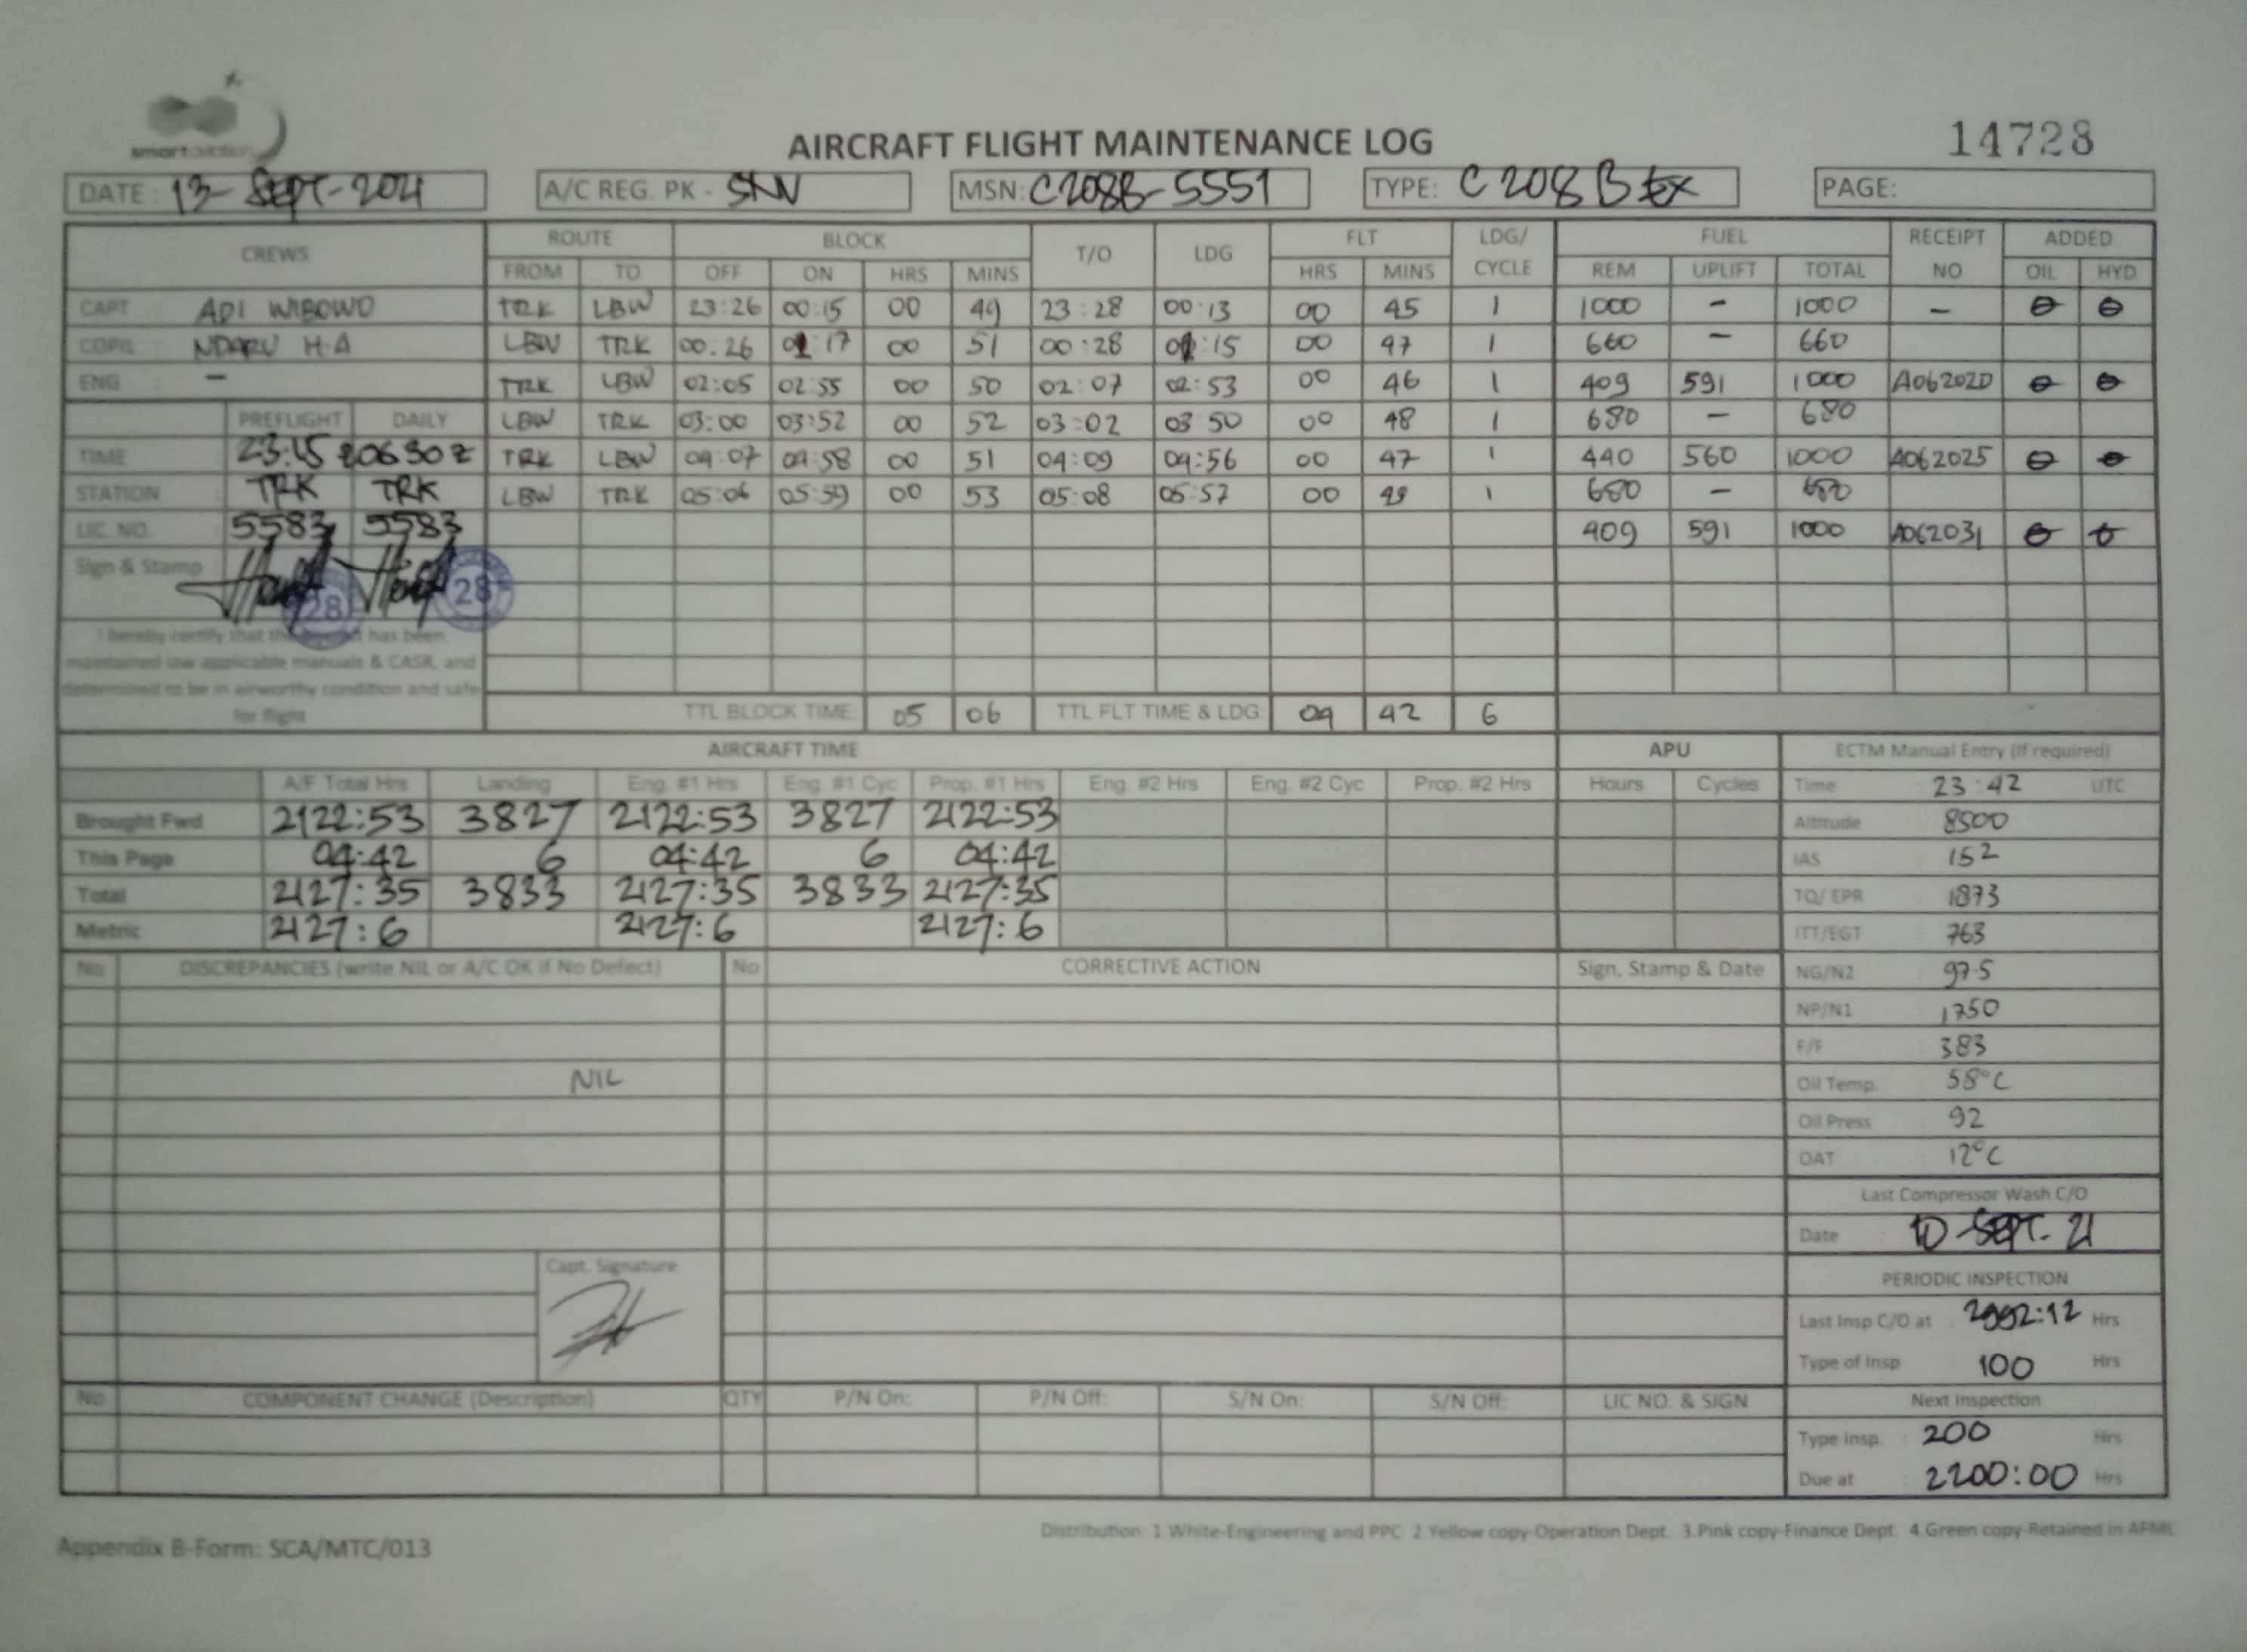 smart aviation
AIRCRAFT FLIGHT MAINTENANCE LOG
14728
DATE : 13-SEPT-2021 A/C REG. PK - SNV MSN: C208B-5551 TYPE: C208B EX PAGE:
CREWS ROUTE BLOCK T/O LDG FLT LDG/ CYCLE FUEL RECEIPT NO ADDED
FROM TO OFF ON HRS MINS HRS MINS REM UPLIFT TOTAL OIL HYD
CAPT : ADI WIBOWO TRK LBW 23:26 00:15 00 49 23:28 00:13 00 45 1 1000 - 1000 - θ θ
COPIL : NDARU H.A LBW TRK 00:26 01:17 00 51 00:28 01:15 00 47 1 660 - 660
ENG : - TRK LBW 02:05 02:55 00 50 02:07 02:53 00 46 1 409 591 1000 A062020 θ θ
PREFLIGHT DAILY LBW TRK 03:00 03:52 00 52 03:02 03 50 00 48 1 680 - 680
TIME : 23:15 206302 TRK LBW 04:07 04:58 00 51 04:09 04:56 00 47 1 440 560 1000 A062025 θ θ
STATION : TRK TRK LBW TRK 05:06 05:59 00 53 05:08 05:57 00 49 1 680 - 680
LIC. NO. : 5583 5583 409 591 1000 A062031 θ θ
Sign & Stamp : 28 28
I hereby certify that the aircraft has been
maintained iaw applicable manuals & CASR, and
determined to be in airworthy condition and safe
for flight
TTL BLOCK TIME: 05 06 TTL FLT TIME & LDG: 04 42 6
AIRCRAFT TIME APU ECTM Manual Entry (If required)
A/F Total Hrs Landing Eng. #1 Hrs Eng. #1 Cyc Prop. #1 Hrs Eng. #2 Hrs Eng. #2 Cyc Prop. #2 Hrs Hours Cycles Time : 23:42 UTC
Brought Fwd 2122:53 3827 2122:53 3827 2122:53 Altitude : 8500
This Page 04:42 6 04:42 6 04:42 IAS : 152
Total 2127:35 3833 2127:35 3833 2127:35 TQ/ EPR : 1873
Metric 2127:6 2127:6 2127:6 ITT/EGT : 763
No DISCREPANCIES (write NIL or A/C OK if No Defect) No CORRECTIVE ACTION Sign, Stamp & Date NG/N2 : 97.5
NP/N1 : 1750
F/F : 383
NIL Oil Temp. : 58°C
Oil Press : 92
OAT : 12°C
Last Compressor Wash C/O
Date : 10-SEPT-21
Capt. Signature
PERIODIC INSPECTION
Last Insp C/O at : Hrs
Type of Insp : 100 Hrs
No COMPONENT CHANGE (Description) QTY P/N On: P/N Off: S/N On: S/N Off: LIC NO. & SIGN Next Inspection
Type Insp. : 200 Hrs
Due at : 2200:00 Hrs
Appendix B-Form: SCA/MTC/013
Distribution: 1.White-Engineering and PPC 2.Yellow copy-Operation Dept. 3.Pink copy-Finance Dept. 4.Green copy-Retained in AFML